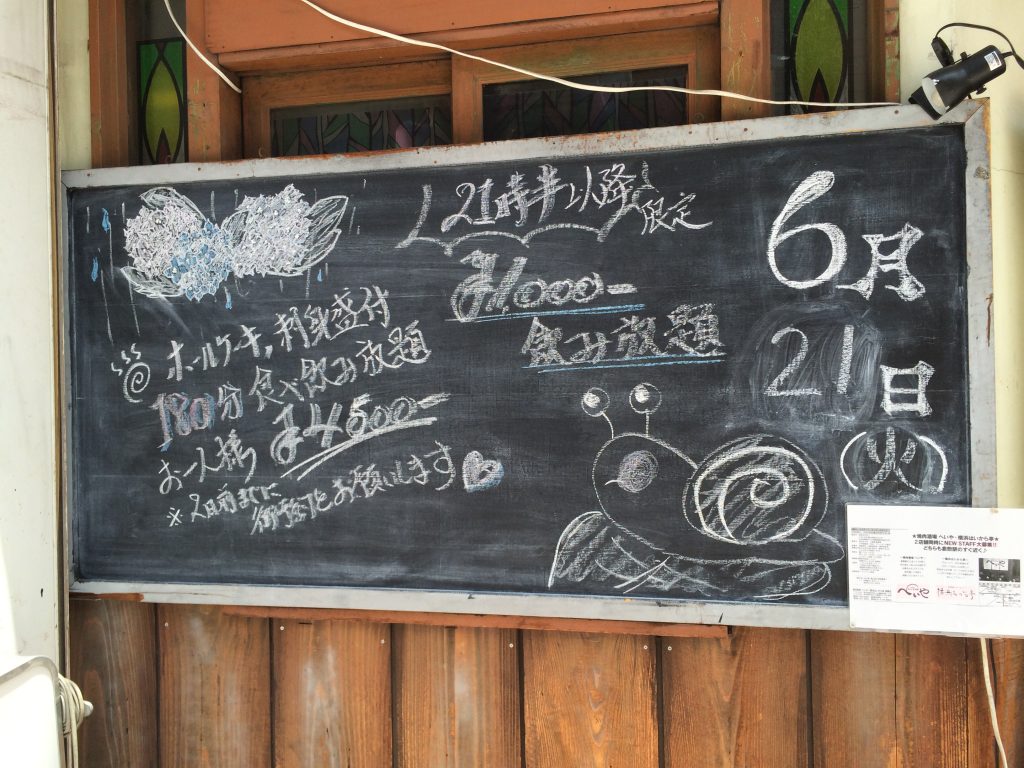 21時半以降
限定
¥1,000-
飲み放題
ホールケーキ,刺身盛付
180分食べ飲み放題
お一人様 ¥4500-
※2日前までに
御予約をお願いします
6月
21日
(火)
★焼肉酒場 へいや・横浜はいから亭★
2店舗同時にNEW STAFF大募集!!
どちらも倉敷駅のすぐ近く♪
へいや